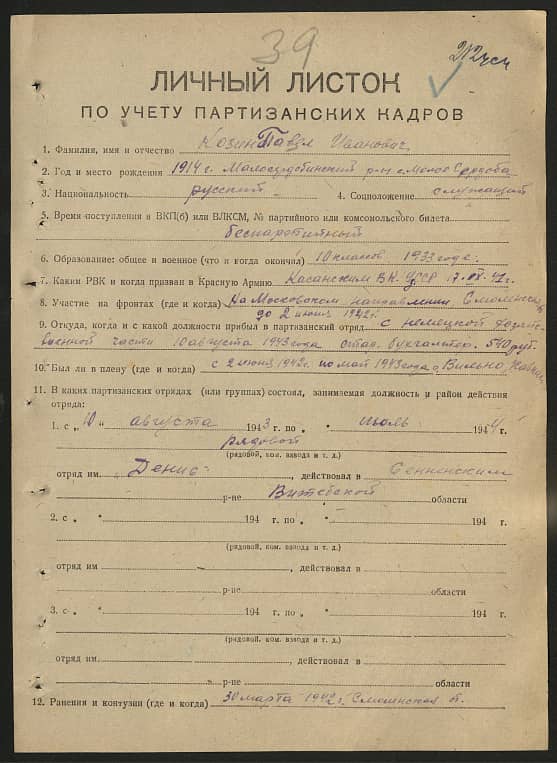 39
ЛИЧНЫЙ ЛИСТОК
ПО УЧЕТУ ПАРТИЗАНСКИХ КАДРОВ
1. Фамилия, имя и отчество Козин Павел Иванович
2. Год и место рождения 1914 г. Малосердобинский р-н с. Мало Сердоба
3. Национальность русский 4. Соцположение служащий
5. Время поступления в ВКП(б) или ВЛКСМ, № партийного или комсомольского билета
беспартийный
6. Образование: общее и военное (что и когда окончил) 10 классов 1933 года.
7. Каким РВК и когда призван в Красную Армию Касанским ВК 17. 41 г.
8. Участие на фронтах (где и когда) На Московском направлении Смоленская
до 2 июня 1942 г.
9. Откуда, когда и с какой должности прибыл в партизанский отряд с немецкой
военной части 10 августа 1943 года бухгалтера.
10. Был ли в плену (где и когда) с 2 июня 1942 г. по май 1943 года Вильно,
11. В каких партизанских отрядах (или группах) состоял, занимаемая должность и район действия
отряда:
1. с „10 " августа 1943 г. по „ " июль 1944 г.
рядовой
(рядовой, ком. взвода и т. д.)
отряд им Денис , действовал в Сенненским
р-не Витебской области
2. с „ " 194 г. по „ " 194 г.
(рядовой, ком. взвода и т. д.)
отряд им , действовал в
р-не области
3. с „ " 194 г. по „ " 194 г.
(рядовой, ком. взвода и т. д.)
отряд им. , действовал в
р-не области
12. Ранения и контузии (где и когда) 30 марта 1942 г.